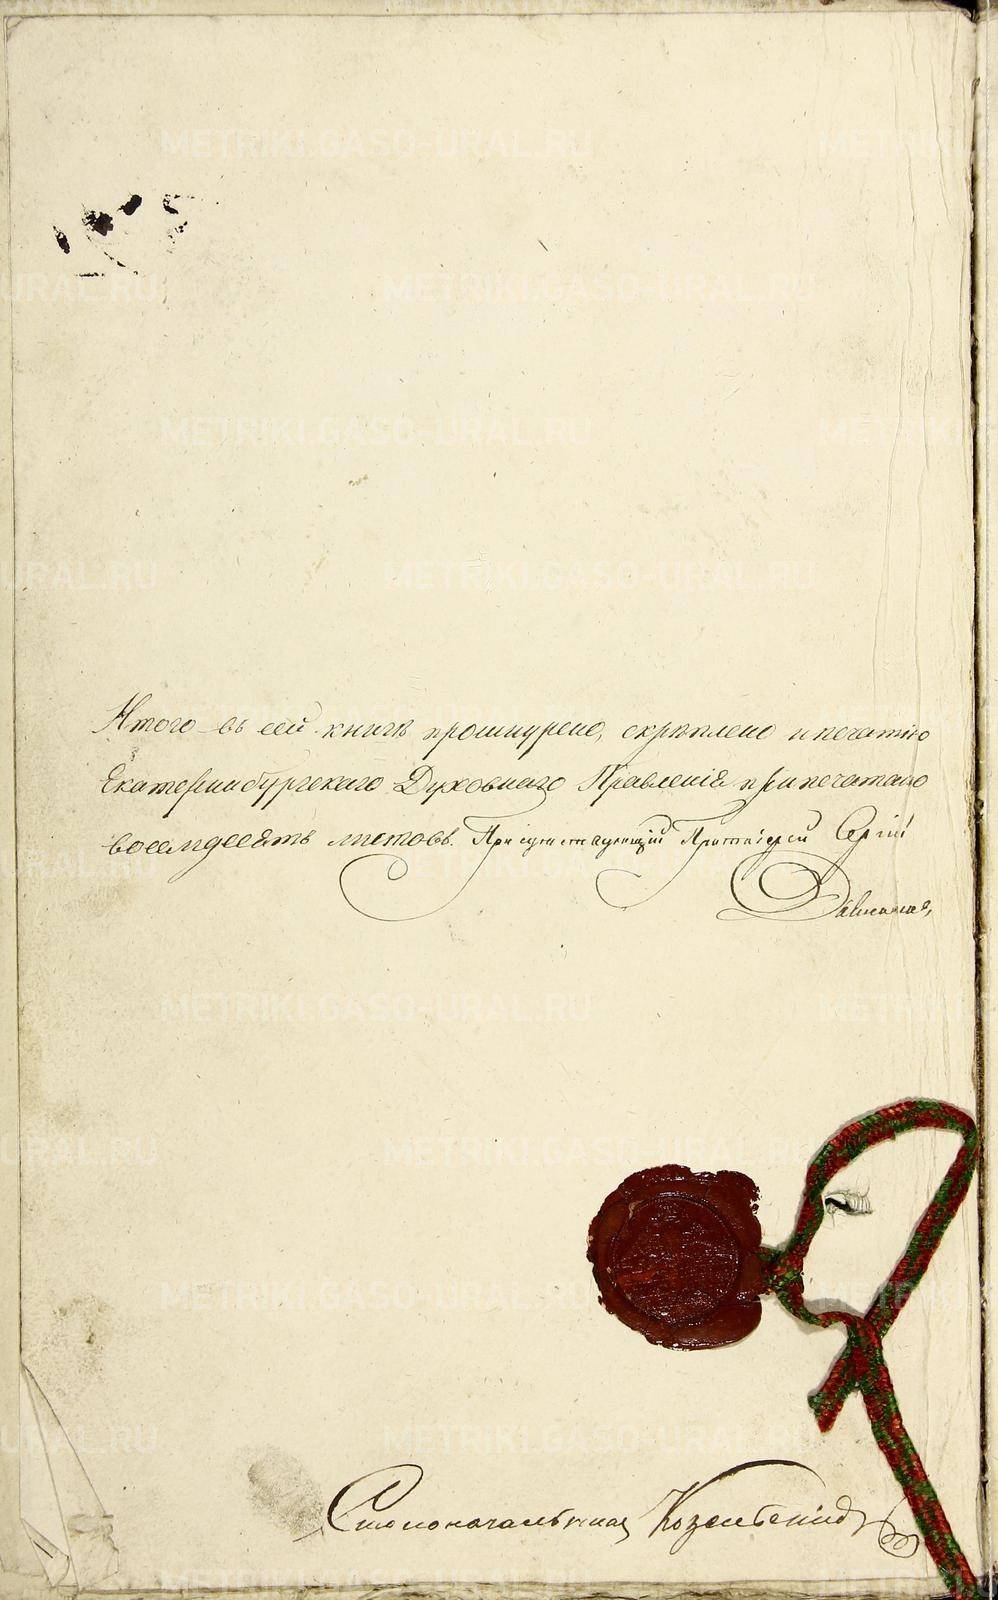 METRIKI.GASO-URAL.RU
Итого въ сей книгѣ прошнурено, скрѣплено и печатію
Екатеринбургскаго Духовнаго Правленія припечатано
восемдесятъ листовъ. Присутствующій Протоіерей Сергій
Столоначальникъ